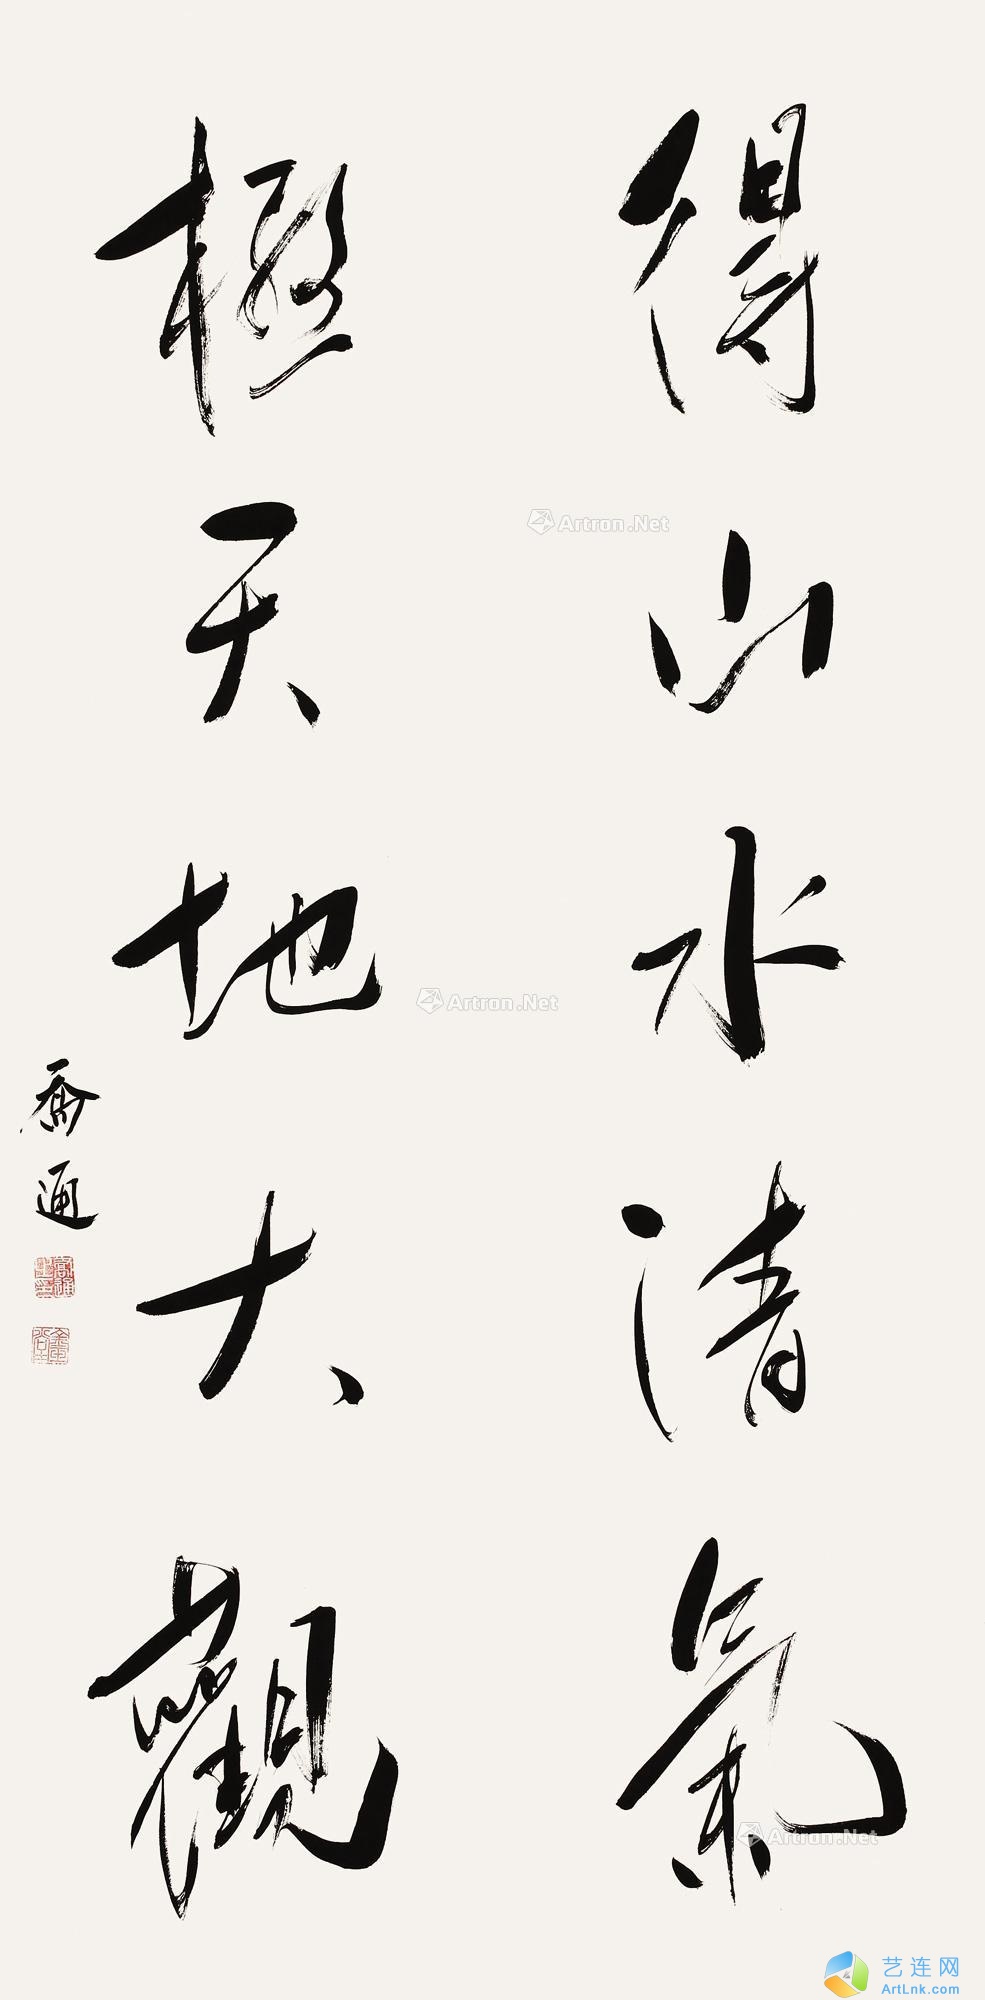 得山水清氣
極天地大觀
喬通
Artron.Net
Artron.Net
Artron.Net
艺连网
ArtLnk.com